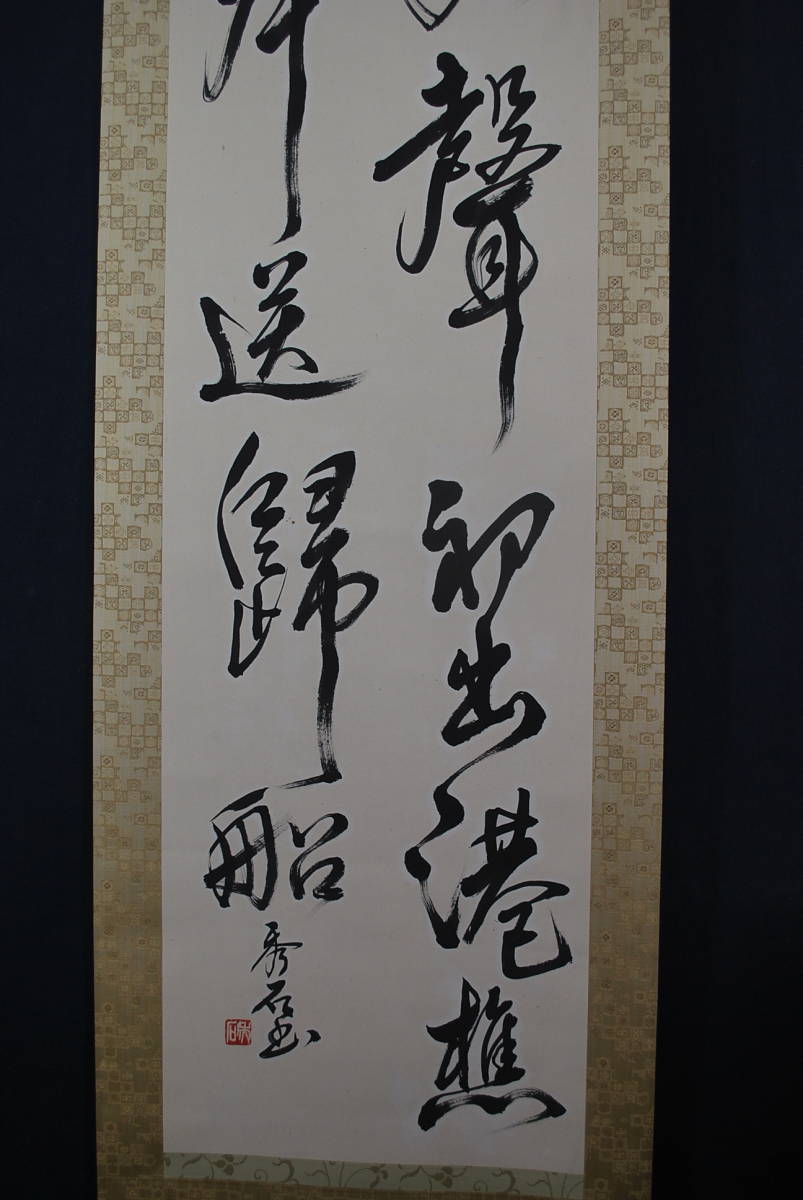 聲初出港樵
送歸船
秀石書